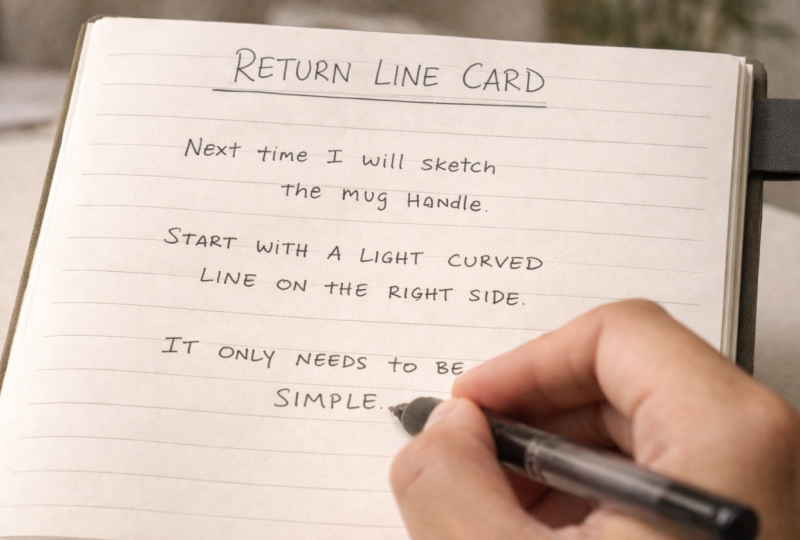 RETURN LINE CARD
Next time I will sketch
the mug Handle.
START WITH A LIGHT CURVED
LINE ON tHE RIGHT SIDE.
IT ONLY NEEDS to BE
SIMPLE.